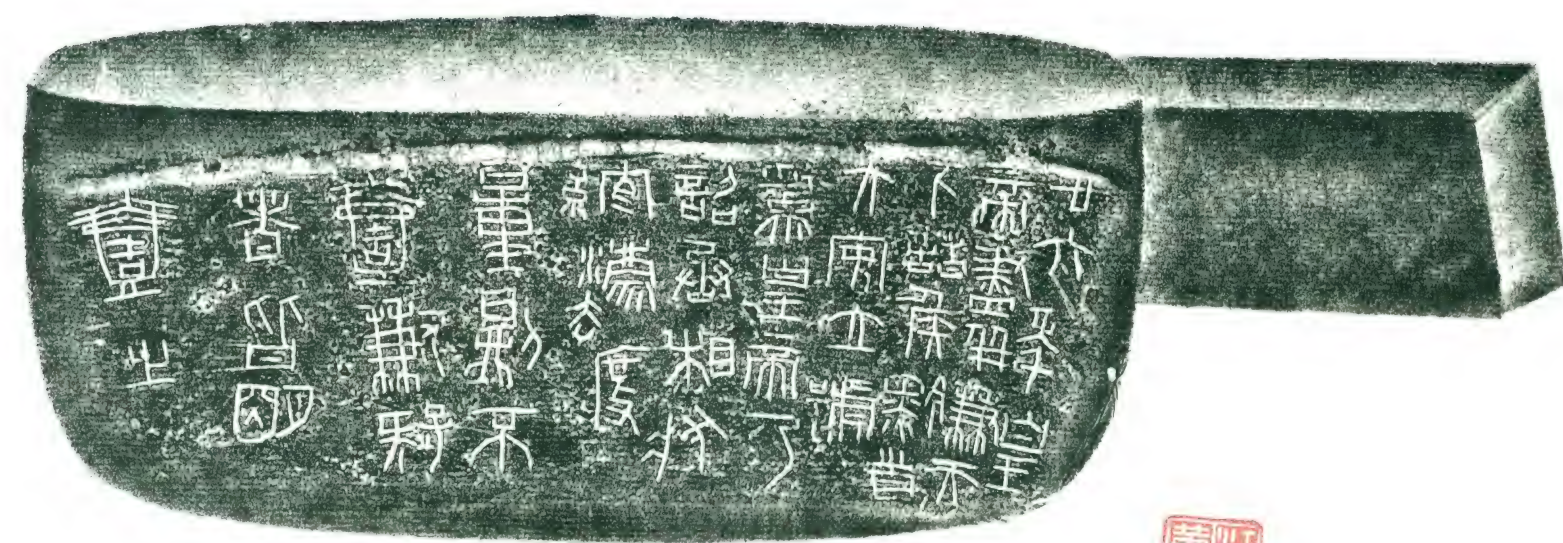 廿六年皇
帝盡并兼天
下諸侯黔首
大安立號
為皇帝乃
詔丞相狀
綰灋度
量則不
壹歉疑
者皆明
壹之